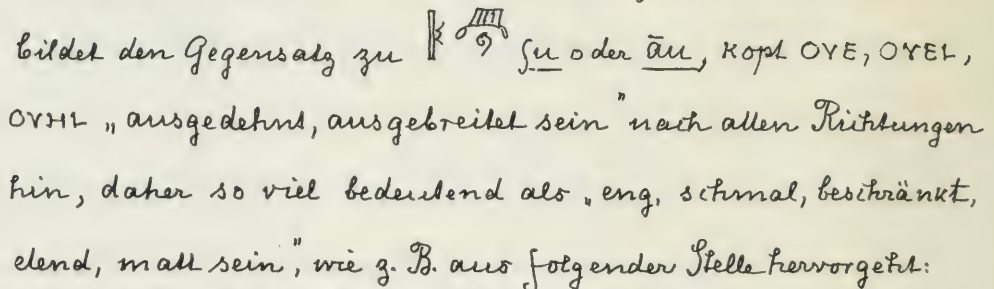 bildet den Gegensatz zu ʃu oder āu, kopt ΟΥΕ, ΟΥΕΙ,
ΟΥΗΙ „ausgedehnt, ausgebreitet sein” nach allen Richtungen
hin, daher so viel bedeutend als „eng, schmal, beschränkt,
elend, matt sein”, wie z. B. aus folgender Stelle hervorgeht: